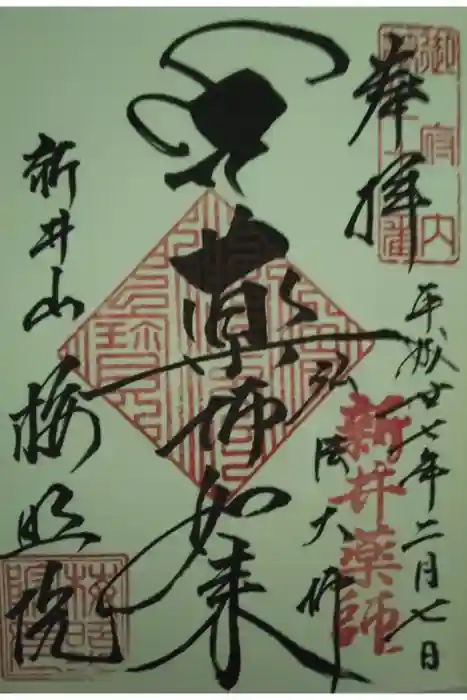 奉拝
平成廿七年二月七日
新井薬師
弘法大師
薬師如来
新井山
梅照院